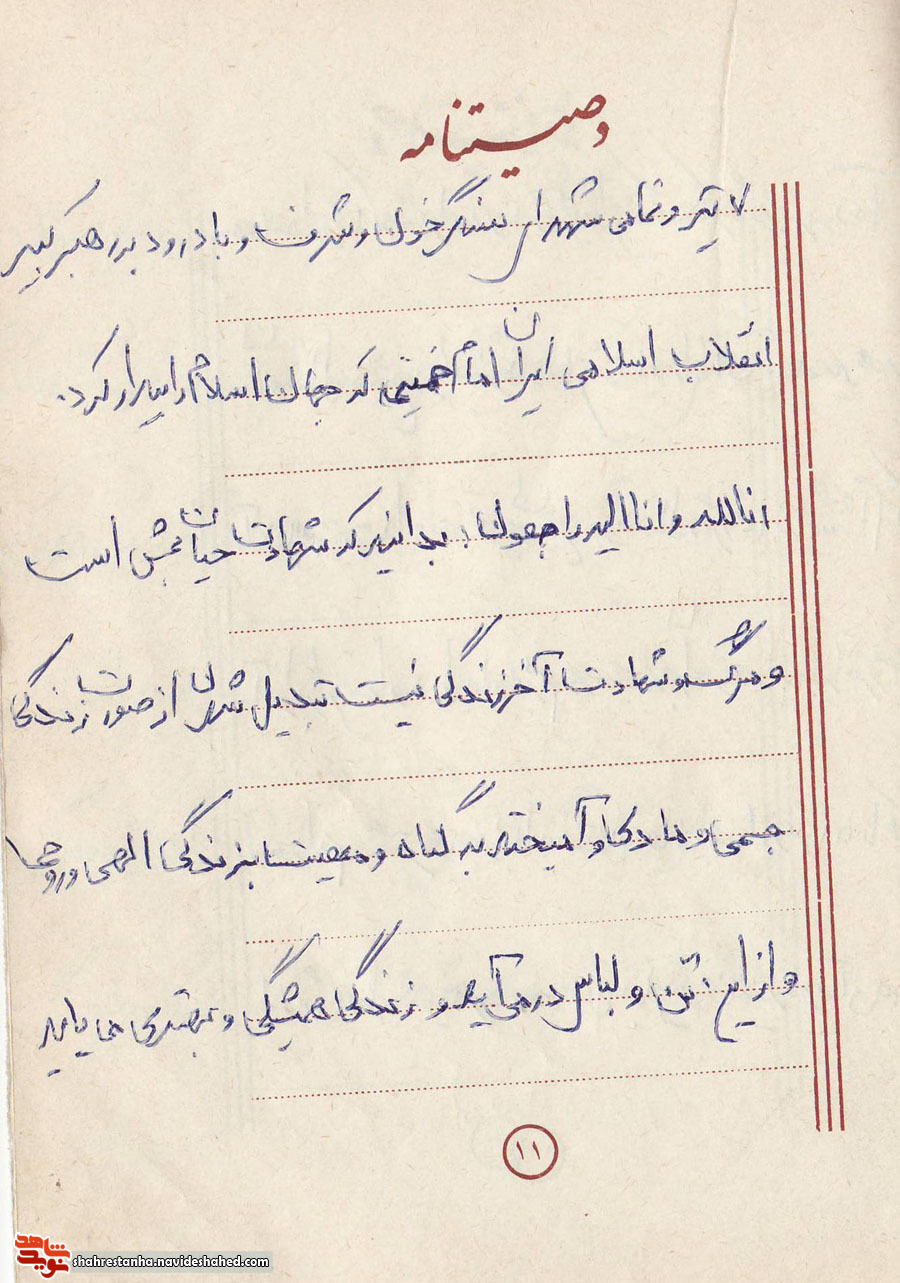 وصیتنامه
۷ تیر و تمامی شهدای سنگر خون و شرف و با درود بر رهبر کبیر
انقلاب اسلامی ایران امام خمینی که جهان اسلام را بیدار کرد.
انا لله و انا الیه راجعون، بدانید که شهادت حیات بخش است
و مرگ و شهادت آخر زندگی نیست تبدیل شدن از صورت زندگی
جسمی و مادی و آمیخته به گناه و معصیت به زندگی الهی و روحی
و از این تن و لباس در می آید و زندگی همیشگی و بهتری می یابد
۱۱
نوید شاهد
shahrestanha.navideshahed.com